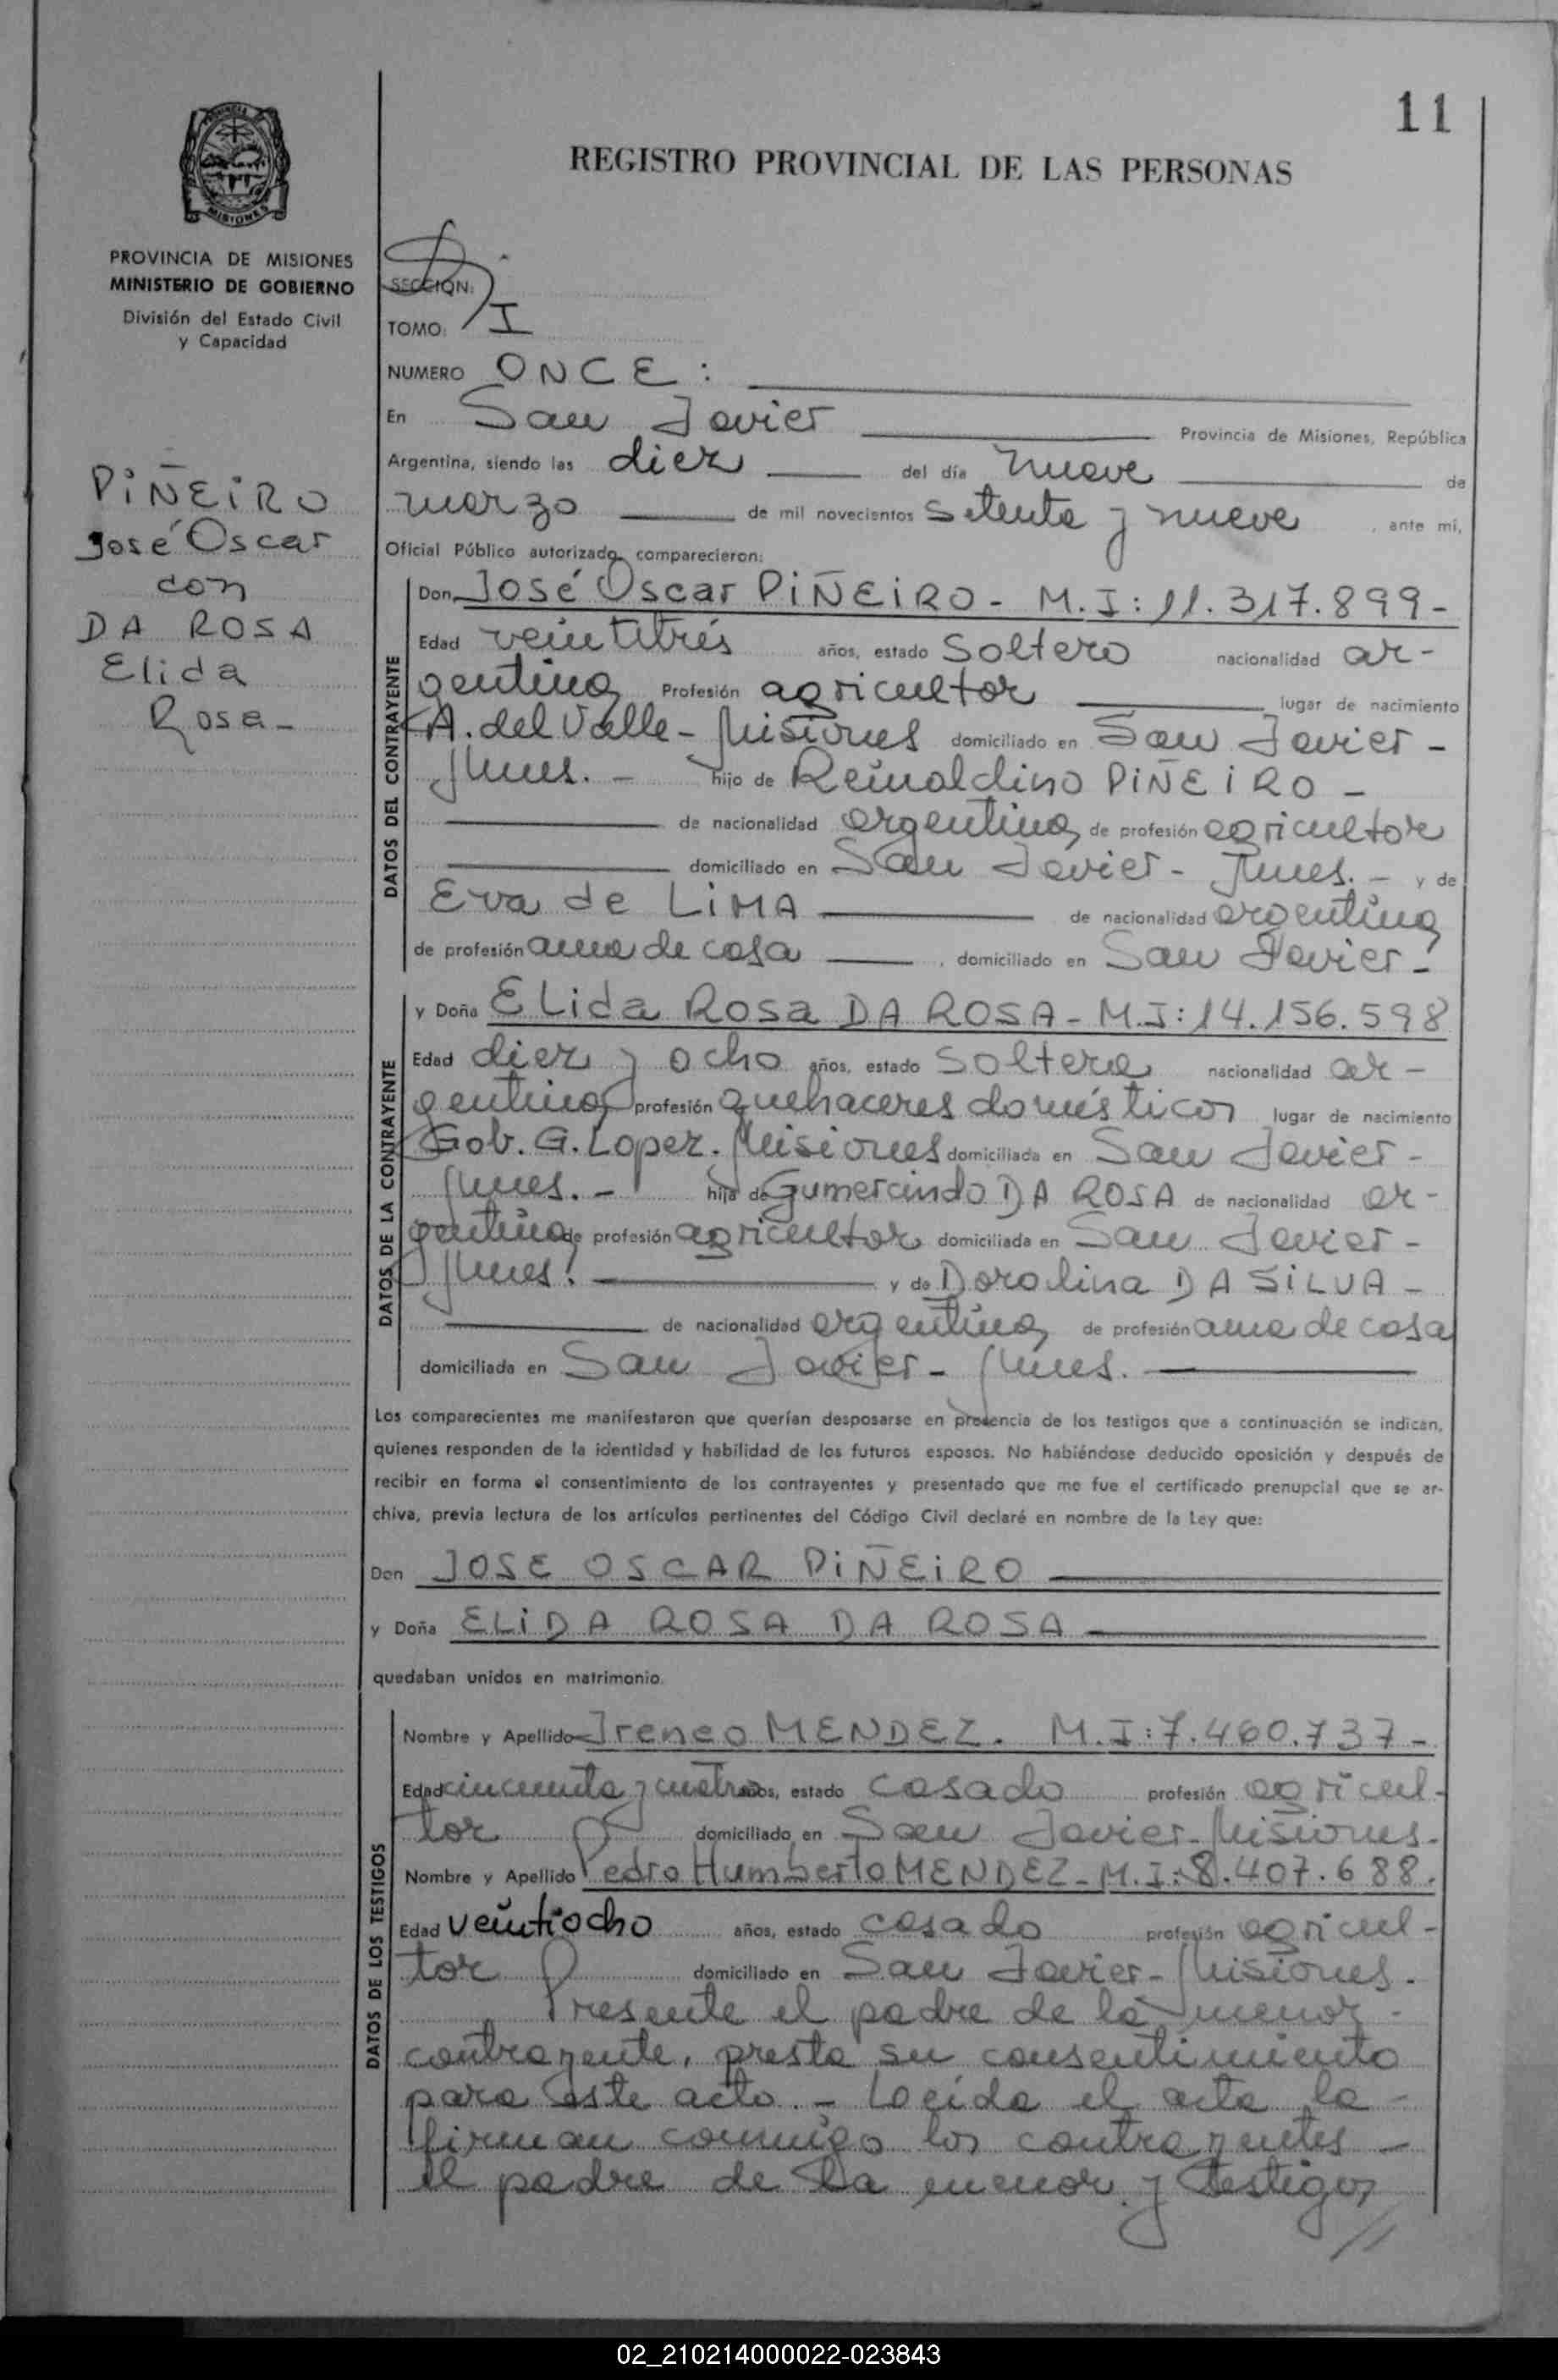 11
REGISTRO PROVINCIAL DE LAS PERSONAS
PROVINCIA DE MISIONES
MINISTERIO DE GOBIERNO
División del Estado Civil
y Capacidad
PIÑEIRO
José Oscar
con
DA ROSA
Elida
Rosa-
SECCION:
TOMO: I
NUMERO ONCE:
En San Javier Provincia de Misiones, República
Argentina, siendo las diez del día nueve de
marzo de mil novecientos setenta y nueve, ante mí,
Oficial Público autorizado, comparecieron:
DATOS DEL CONTRAYENTE
Don José Oscar PIÑEIRO- M.I: 11.317.899-
Edad veintitrés años, estado soltero nacionalidad ar-
gentina Profesión agricultor lugar de nacimiento
A. del Valle- Misiones domiciliado en San Javier-
Mnes.- hijo de Reinaldino PIÑEIRO-
de nacionalidad argentina de profesión agricultor
domiciliado en San Javier- Mnes.- y de
Eva de LIMA de nacionalidad argentina
de profesión ama de casa, domiciliado en San Javier-
DATOS DE LA CONTRAYENTE
y Doña Elida Rosa DA ROSA- M.I: 14.156.598
Edad diez y ocho años, estado soltera nacionalidad ar-
gentina profesión quehaceres domésticos lugar de nacimiento
Gob. G. Lopez. Misiones domiciliada en San Javier-
Mnes.- hija de Gumercindo DA ROSA de nacionalidad ar-
gentina de profesión agricultor domiciliada en San Javier-
Mnes. y de Doralina DA SILVA-
de nacionalidad argentina de profesión ama de casa
domiciliada en San Javier- Mnes.
Los comparecientes me manifestaron que querían desposarse en presencia de los testigos que a continuación se indican,
quienes responden de la identidad y habilidad de los futuros esposos. No habiéndose deducido oposición y después de
recibir en forma el consentimiento de los contrayentes y presentado que me fue el certificado prenupcial que se ar-
chiva, previa lectura de los artículos pertinentes del Código Civil declaré en nombre de la Ley que:
Don JOSE OSCAR PIÑEIRO
y Doña ELIDA ROSA DA ROSA
quedaban unidos en matrimonio.
DATOS DE LOS TESTIGOS
Nombre y Apellido Ireneo MENDEZ. M.I: 7.460.737-
Edad cincuenta y cuatro años, estado casado profesión agricul-
tor domiciliado en San Javier- Misiones-
Nombre y Apellido Pedro Humberto MENDEZ- M.I: 8.407.688.
Edad veintiocho años, estado casado profesión agricul-
tor domiciliado en San Javier- Misiones.
Presente el padre de la menor-
contrayente, presta su consentimiento
para este acto.- Leída el acta la-
firman conmigo los contrayentes-
el padre de la menor y testigos
//
02_210214000022-023843